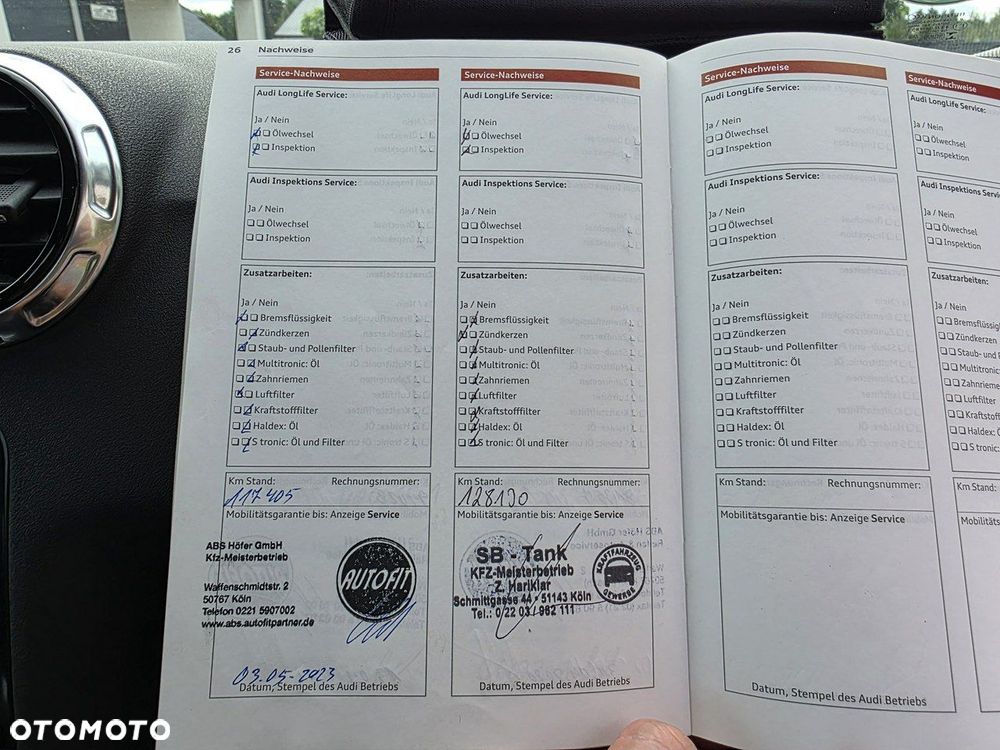 26 Nachweise
Service-Nachweise
Audi LongLife Service:
Ja / Nein
Ölwechsel
Inspektion
Audi Inspektions Service:
Ja / Nein
Ölwechsel
Inspektion
Zusatzarbeiten:
Ja / Nein
Bremsflüssigkeit
Zündkerzen
Staub- und Pollenfilter
Multitronic: Öl
Zahnriemen
Luftfilter
Kraftstofffilter
Haldex: Öl
S tronic: Öl und Filter
Km Stand: Rechnungsnummer:
117 405
Mobilitätsgarantie bis: Anzeige Service
ABS Höfer GmbH
Kfz-Meisterbetrieb
Waffenschmidtstr. 2
50767 Köln
Telefon 0221 5907002
www.abs.autofitpartner.de
AUTOFIT
03.05.2023
Datum, Stempel des Audi Betriebs
Service-Nachweise
Audi LongLife Service:
Ja / Nein
Ölwechsel
Inspektion
Audi Inspektions Service:
Ja / Nein
Ölwechsel
Inspektion
Zusatzarbeiten:
Ja / Nein
Bremsflüssigkeit
Zündkerzen
Staub- und Pollenfilter
Multitronic: Öl
Zahnriemen
Luftfilter
Kraftstofffilter
Haldex: Öl
S tronic: Öl und Filter
Km Stand: Rechnungsnummer:
128190
Mobilitätsgarantie bis: Anzeige Service
SB - Tank
KFZ-Meisterbetrieb
Z. Hariklar
Schmittgasse 44 • 51143 Köln
Tel.: 0 22 03 / 982 111
KRAFTFAHRZEUG
GEWERBE
Datum, Stempel des Audi Betriebs
Service-Nachweise
Audi LongLife Service:
Ja / Nein
Ölwechsel
Inspektion
Audi Inspektions Service:
Ja / Nein
Ölwechsel
Inspektion
Zusatzarbeiten:
Ja / Nein
Bremsflüssigkeit
Zündkerzen
Staub- und Pollenfilter
Multitronic: Öl
Zahnriemen
Luftfilter
Kraftstofffilter
Haldex: Öl
S tronic: Öl und Filter
Km Stand: Rechnungsnummer:
Mobilitätsgarantie bis: Anzeige Service
Datum, Stempel des Audi Betriebs
Service-Nachweise
Audi LongLife Service:
Ja / Nein
Ölwechsel
Inspektion
Audi Inspektions Service:
Ja / Nein
Ölwechsel
Inspektion
Zusatzarbeiten:
Ja / Nein
Bremsflüssigkeit
Zündkerzen
Staub- und
Multitronic: Öl
Zahnriemen
Luftfilter
Kraftstofffilter
Haldex: Öl
S tronic: Öl
Km Stand:
OTOMOTO